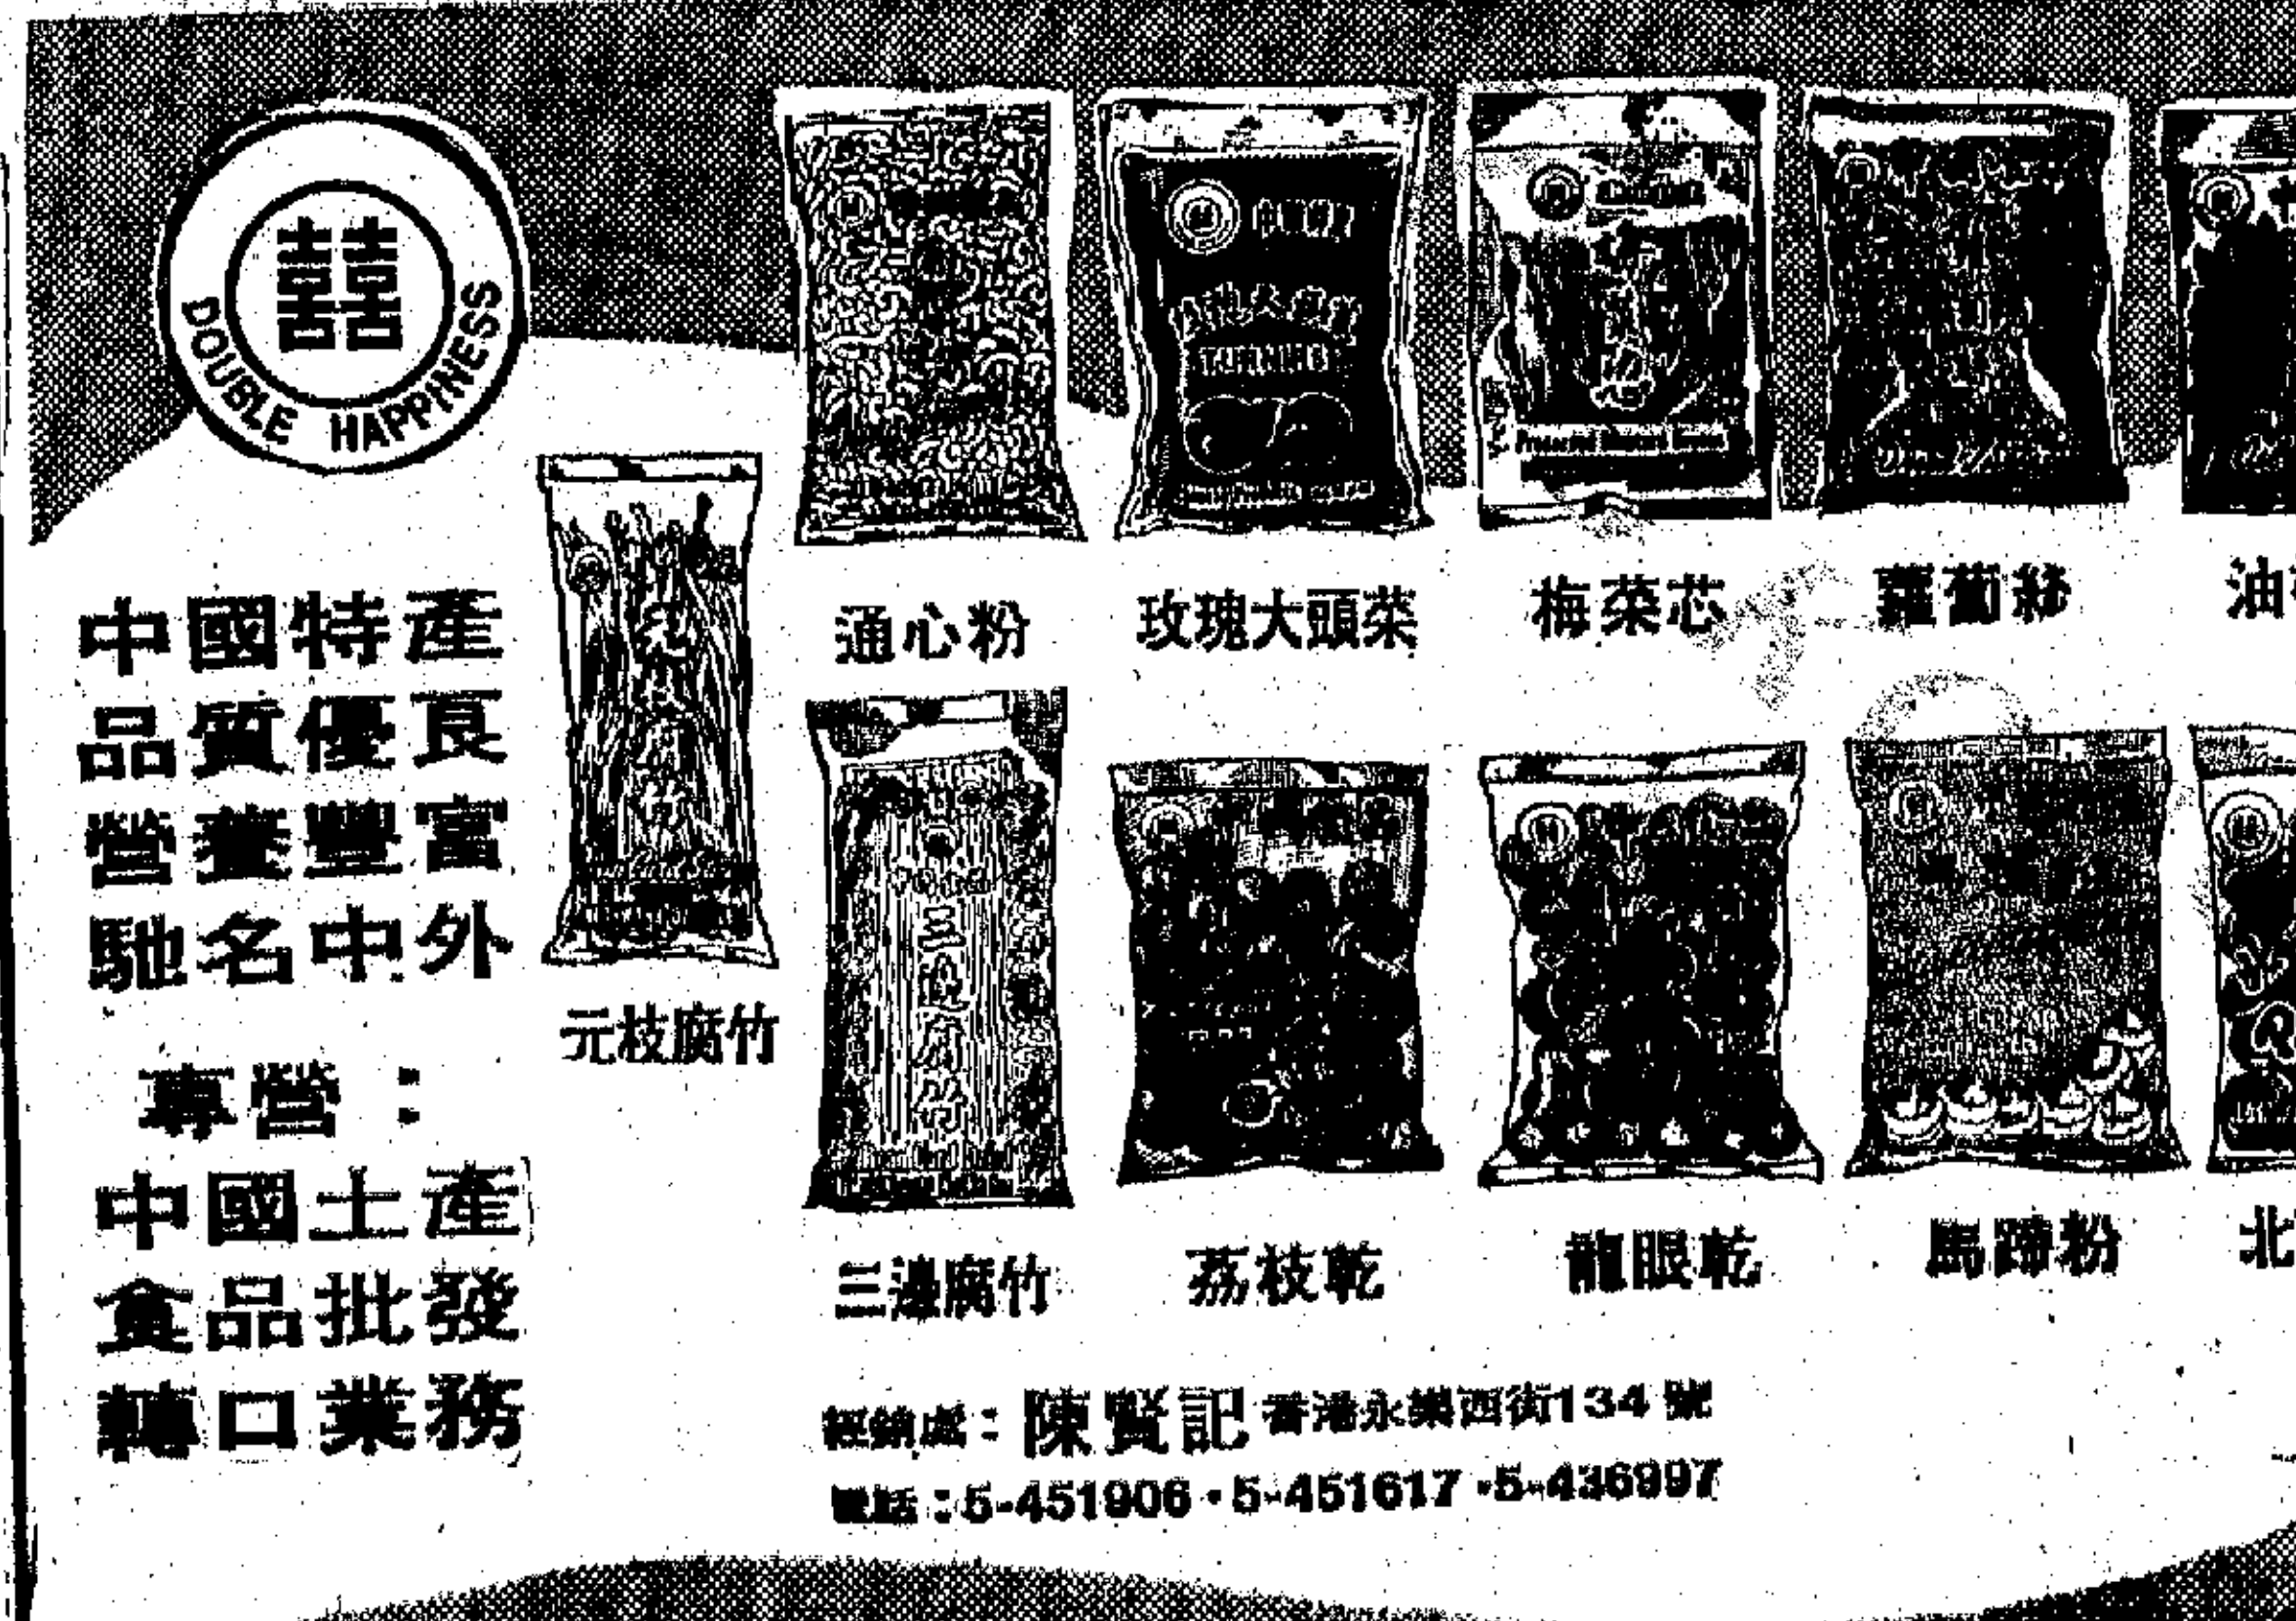 囍
DOUBLE HAPPINESS
中國特產
品質優良
營養豐富
馳名中外
專營：
中國土產
食品批發
轉口業務
元枝腐竹
通心粉
玫瑰大頭菜
梅菜芯
蘿蔔絲
油
三邊腐竹
荔枝乾
龍眼乾
馬蹄粉
北
經銷處：陳賢記 香港永樂西街134號
電話：5-451906・5-451617・5-436997